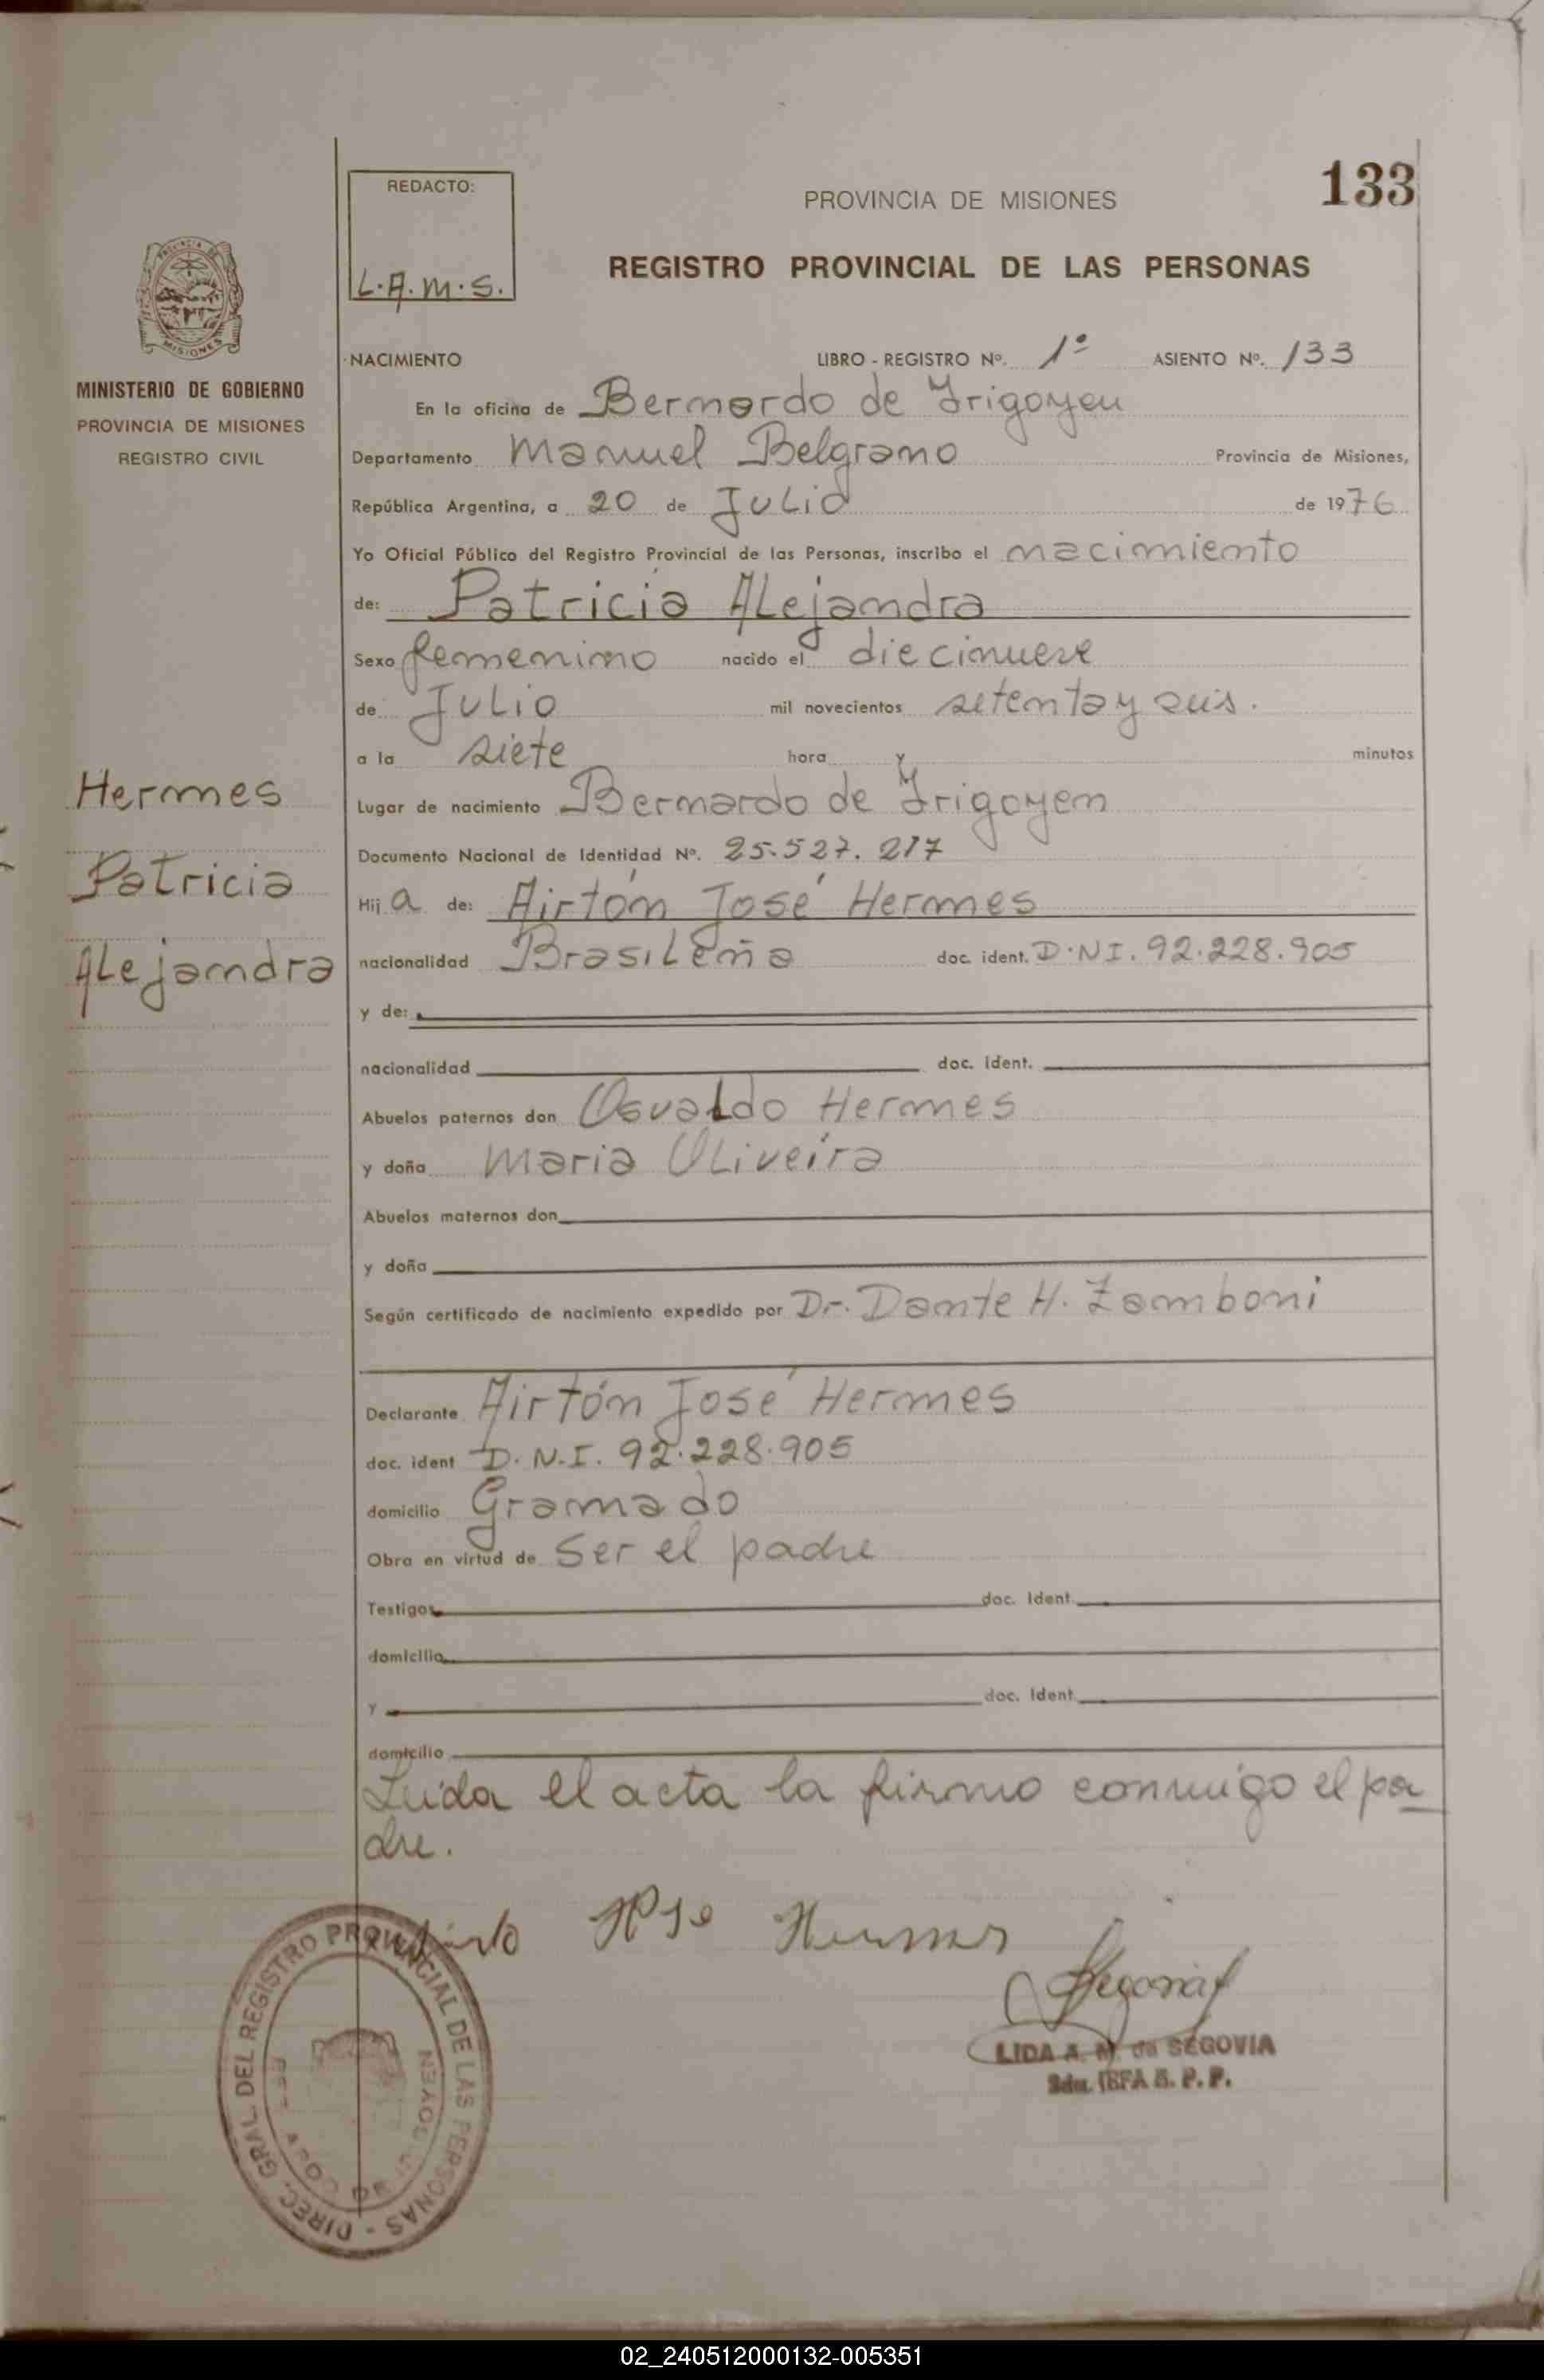 133
REDACTO:
L.A.M.S.
PROVINCIA DE MISIONES
REGISTRO PROVINCIAL DE LAS PERSONAS
PROVINCIA DE
MISIONES
MINISTERIO DE GOBIERNO
PROVINCIA DE MISIONES
REGISTRO CIVIL
NACIMIENTO LIBRO - REGISTRO Nº. 1º ASIENTO Nº. 133
En la oficina de Bernardo de Irigoyen
Departamento Manuel Belgrano Provincia de Misiones,
República Argentina, a 20 de Julio de 1976
Yo Oficial Público del Registro Provincial de las Personas, inscribo el nacimiento
de: Patricia Alejandra
Sexo femenino nacido el diecinueve
de Julio mil novecientos setenta y seis.
a la siete hora y minutos
Hermes
Patricia
Alejandra
Lugar de nacimiento Bernardo de Irigoyen
Documento Nacional de Identidad Nº. 25.527.217
Hij a de: Airtón José Hermes
nacionalidad Brasileña doc. ident. D.N.I. 92.228.905
y de:
nacionalidad doc. ident.
Abuelos paternos don Osvaldo Hermes
y doña Maria Oliveira
Abuelos maternos don
y doña
Según certificado de nacimiento expedido por Dr. Dante H. Zamboni
Declarante Airtón José Hermes
doc. ident D.N.I. 92.228.905
domicilio Gramado
Obra en virtud de Ser el padre
Testigos doc. Ident.
domicilio
y doc. Ident.
domicilio
Leída el acta la firmo conmigo el pa
dre.
DIREC. GRAL. DEL REGISTRO PROVINCIAL DE LAS PERSONAS -
Segovia
LIDA A. M. de SEGOVIA